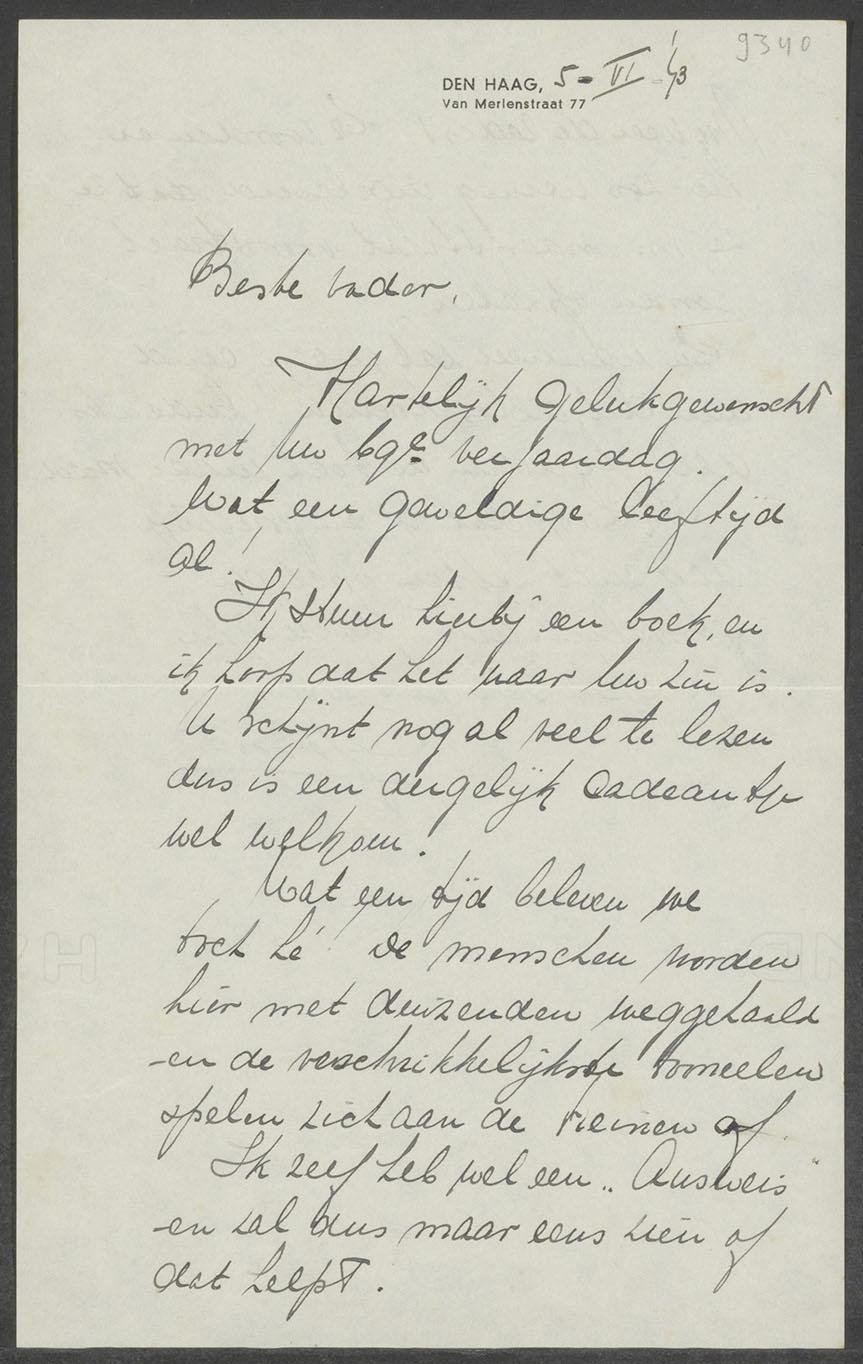 9340
DEN HAAG, 5 - VI - '43
Van Merlenstraat 77
Beste vader,
Hartelijk gelukgewenscht
met uw 69e verjaardag.
Wat een geweldige leeftijd
al!
Ik stuur hierbij een boek, en
ik hoop dat het naar uw zin is.
U schijnt nog al veel te lezen
dus is een dergelijk cadeautje
wel welkom.
Wat een tijd beleven we
toch hé! De menschen worden
hier met duizenden weggehaald
en de verschrikkelijkste tooneelen
spelen zich aan de treinen af.
Ik zelf heb wel een „Ausweis"
en zal dus maar eens zien of
dat helpt.